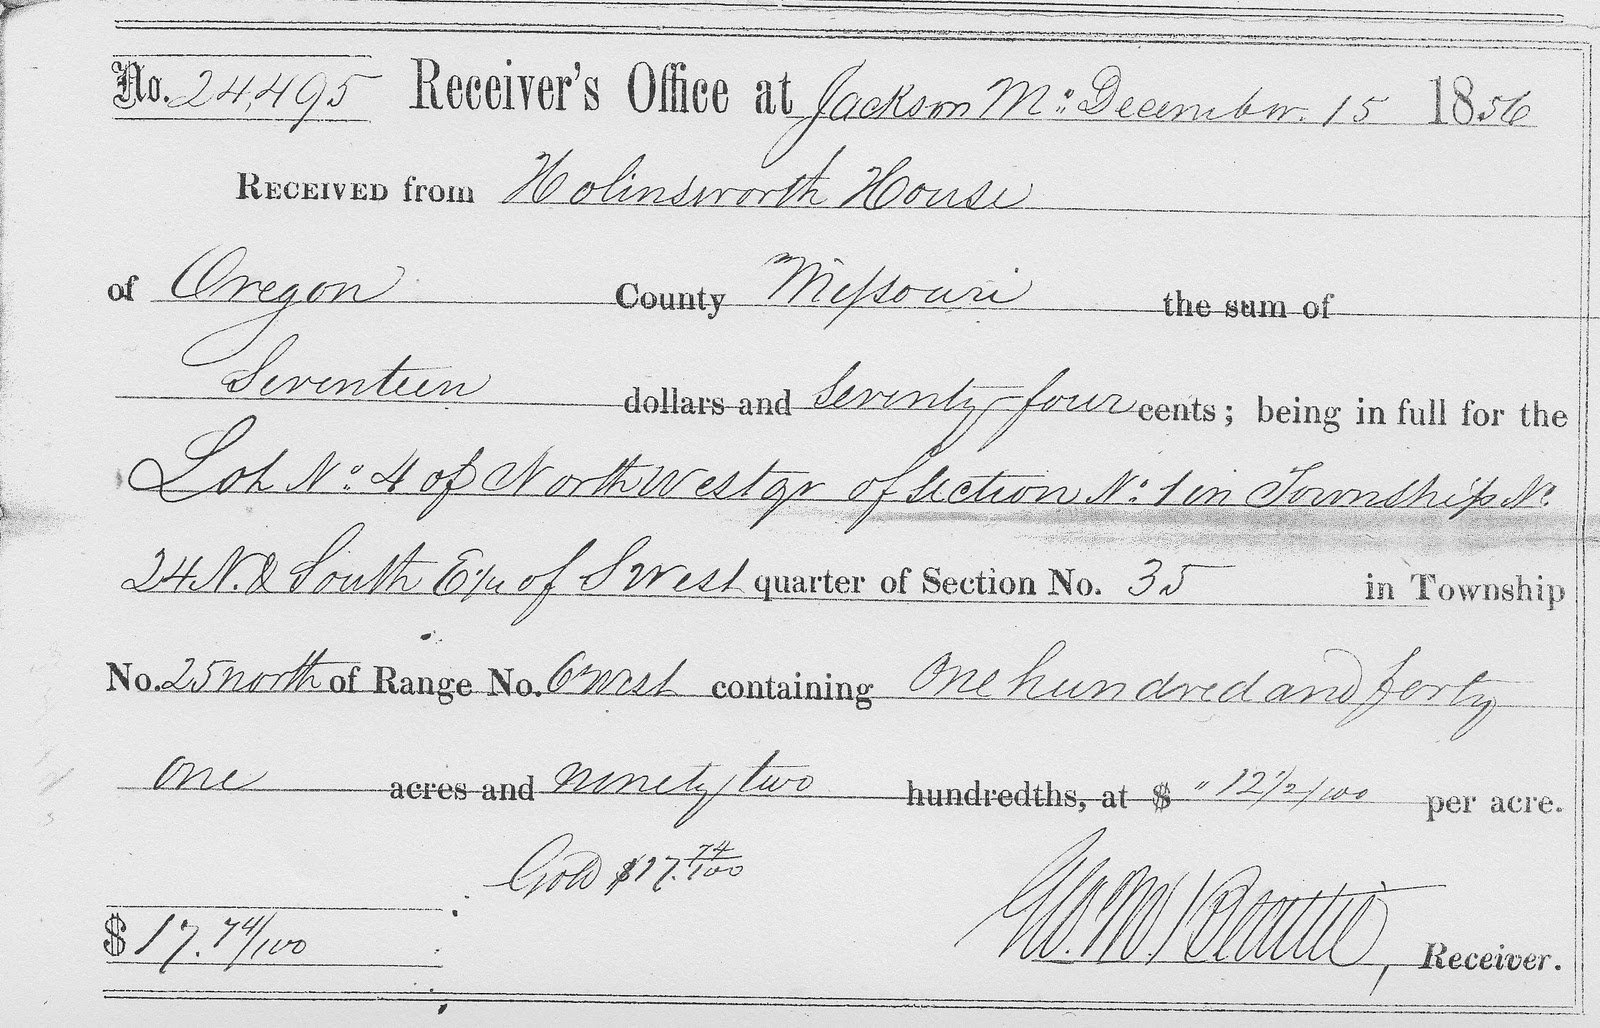 No. 24,495 Receiver's Office at Jackson Mo: December. 15 1856
Received from Holinsworth House
of Oregon County Missouri the sum of
Seventeen dollars and Seventy-four cents; being in full for the
Lot No: 4 of North West qr of Section No: 1 in Township No
24 N. & South E qr of S West quarter of Section No. 35 in Township
No. 25 north of Range No. 6 west containing One hundred and forty
one acres and ninety two hundredths, at $ " 12 1/2/100 per acre.
Gold $17.74/100
$17.74/100 Geo. M. Beattie, Receiver.